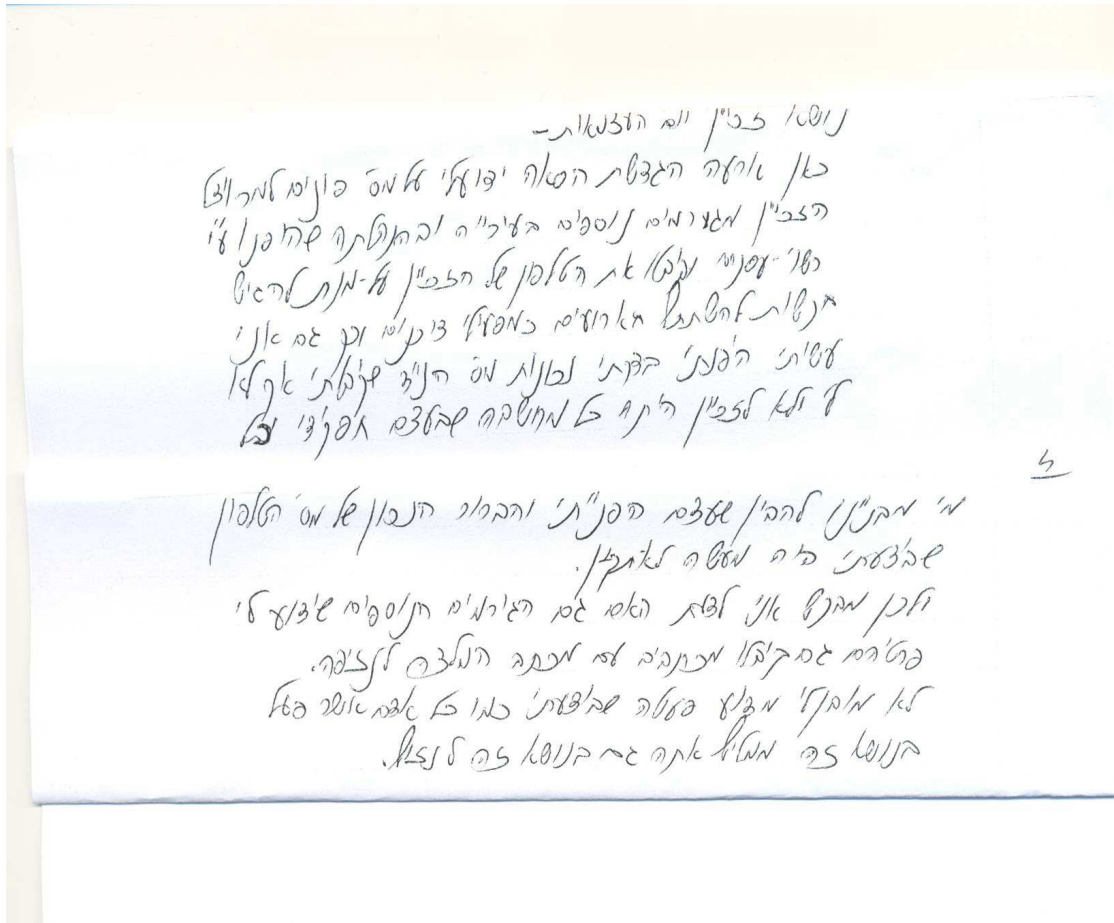 נושא זכיין יום העצמאות-
כאן ארעה הגדשת הסאה ידוע לי על מס' פונים למכרז של
הזכיין מגורמים נוספים בעירייה ובהנהלתה שהופנו ע"י
רשוי עסקים וקיבלו את הטלפון של הזכיין על-מנת להגיש
בקשות להשתתף בארועים כמפעילי דוכנים וכך גם אני
עשיתי הפנתי בדקתי נכונות מס' הנייד שקיבלתי אך לא
לי ולא לזכיין היתה כל מחושבה שבעצם תפקידי וכל
ל
מי מבנינו להבין שעצם הפנייתי והברור הנכון של מס' הטלפון
שביצעתי היה מעשה לא תקין.
ולכן מבקש אני לדעת האם גם הגורמים הנוספים שידוע לי
פרטיהם גם קיבלו מכתבים עם מכתב המלצה לנזיפה.
לא מובן לי מדוע פעולה שביצעתי כמו כל אדם אשר פעל
בנושא זה ממליץ אתה גם בנושא זה לנזוף.